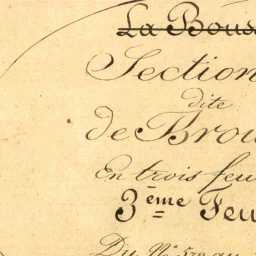 La Bous
Section
dite
de Brou
En trois feu
3ème Feu
Du N°